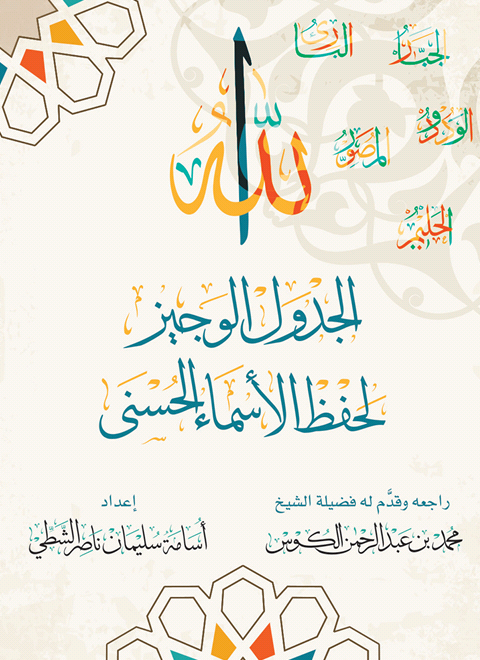 الجبار
البارئ
الودود
المصور
الحليم
الله
الجدول الوجيز
لحفظ الأسماء الحسنى
راجعه وقدَّم له فضيلة الشيخ
محمد بن عبد الرحمن الكوس
إعداد
أسامة سليمان ناصر الشطي